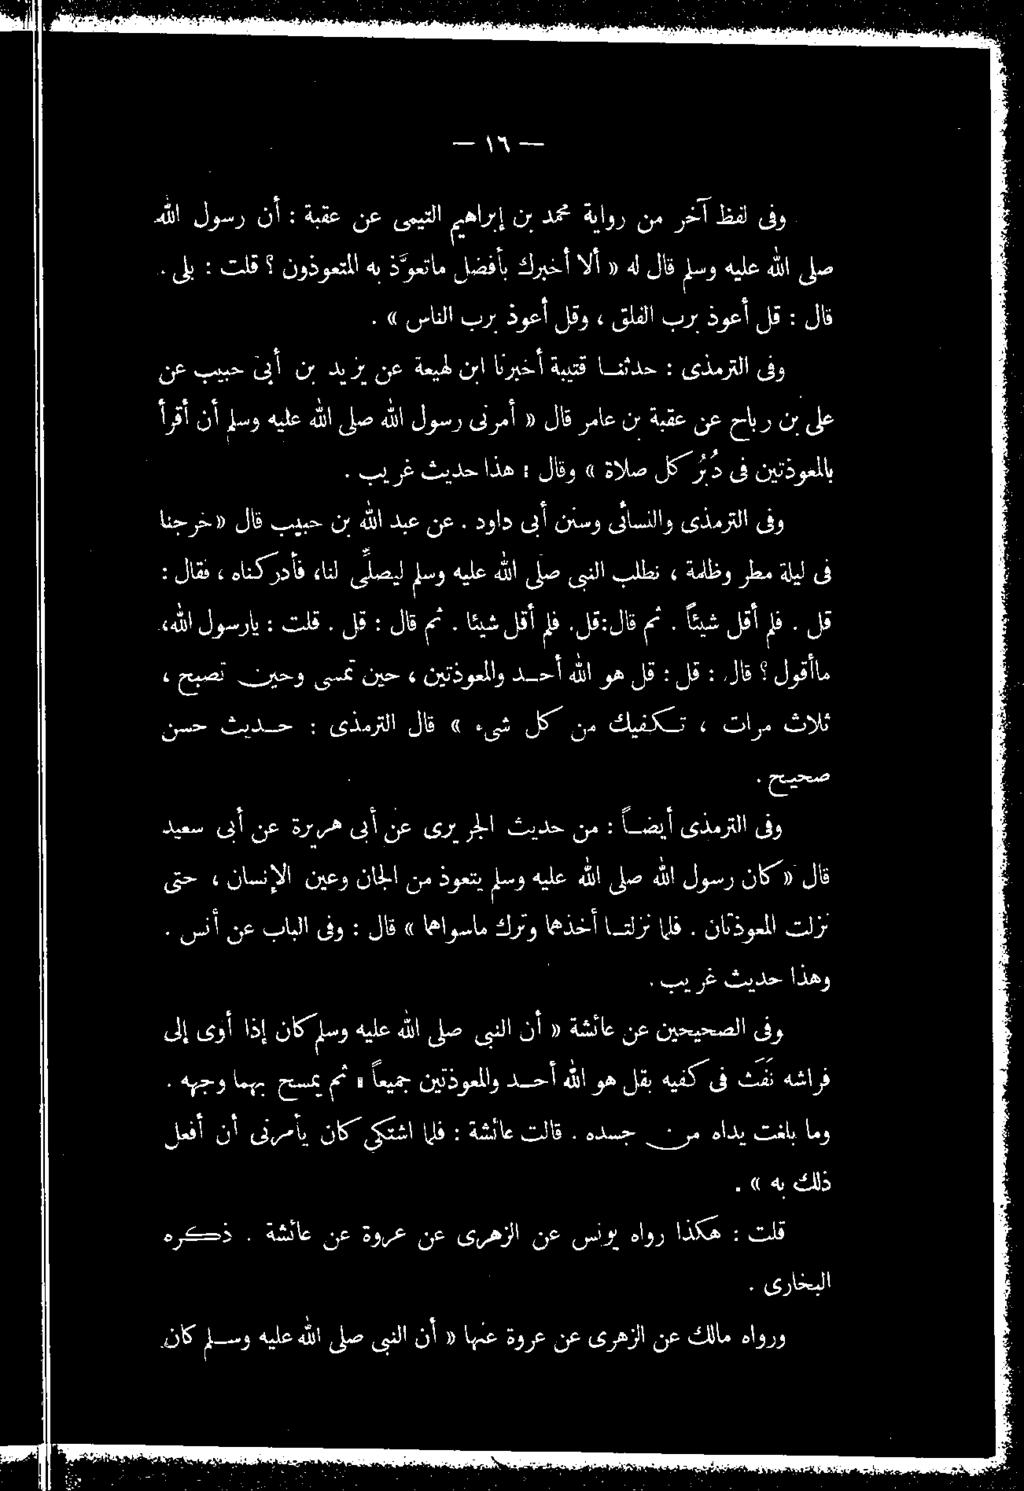 — ١٦ —
وفى لفظ آخر من رواية محمد بن إبراهيم التيمى عن عقبة : أن رسول الله
صلى الله عليه وسلم قال له « ألا أخبرك بأفضل ماتعوَّذ به المتعوذون ؟ قلت : بلى .
قال : قل أعوذ برب الفلق ، وقل أعوذ برب الناس » .
وفى الترمذى : حدثنا قتيبة أخبرنا ابن لهيعة عن يزيد بن أبى حبيب عن
على بن رباح عن عقبة بن عامر قال « أمرنى رسول الله صلى الله عليه وسلم أن أقرأ
بالمعوذتين فى دُبُر كل صلاة » وقال : هذا حديث غريب .
وفى الترمذى والنسائى وسنن أبى داود . عن عبد الله بن حبيب قال « خرجنا
فى ليلة مطر وظلمة ، نطلب النبى صلى الله عليه وسلم ليصلِّى لنا ، فأدركناه ، فقال :
قل . فلم أقل شيئاً . ثم قال : قل . فلم أقل شيئا . ثم قال : قل . قلت : يارسول الله ،
ماأقول ؟ قال : قل : قل هو الله أحد والمعوذتين ، حين تمسى وحين تصبح ،
ثلاث مرات ، تكفيك من كل شىء » قال الترمذى : حديث حسن
صحيح .
وفى الترمذى أيضاً : من حديث الجريرى عن أبى هريرة عن أبى سعيد
قال « كان رسول الله صلى الله عليه وسلم يتعوذ من الجان وعين الإنسان ، حتى
نزلت المعوذتان . فلما نزلتا أخذهما وترك ماسواهما » قال : وفى الباب عن أنس .
وهذا حديث غريب .
وفى الصحيحين عن عائشة « أن النبى صلى الله عليه وسلم كان إذا أوى إلى
فراشه نَفَث فى كفيه بقل هو الله أحد والمعوذتين جميعاً ، ثم يمسح بهما وجهه .
وما بلغت يداه من جسده . قالت عائشة : فلما اشتكى كان يأمرنى أن أفعل
ذلك به » .
قلت : هكذا رواه يونس عن الزهرى عن عروة عن عائشة . ذكره
البخارى .
ورواه مالك عن الزهرى عن عروة عنها « أن النبى صلى الله عليه وسلم كان